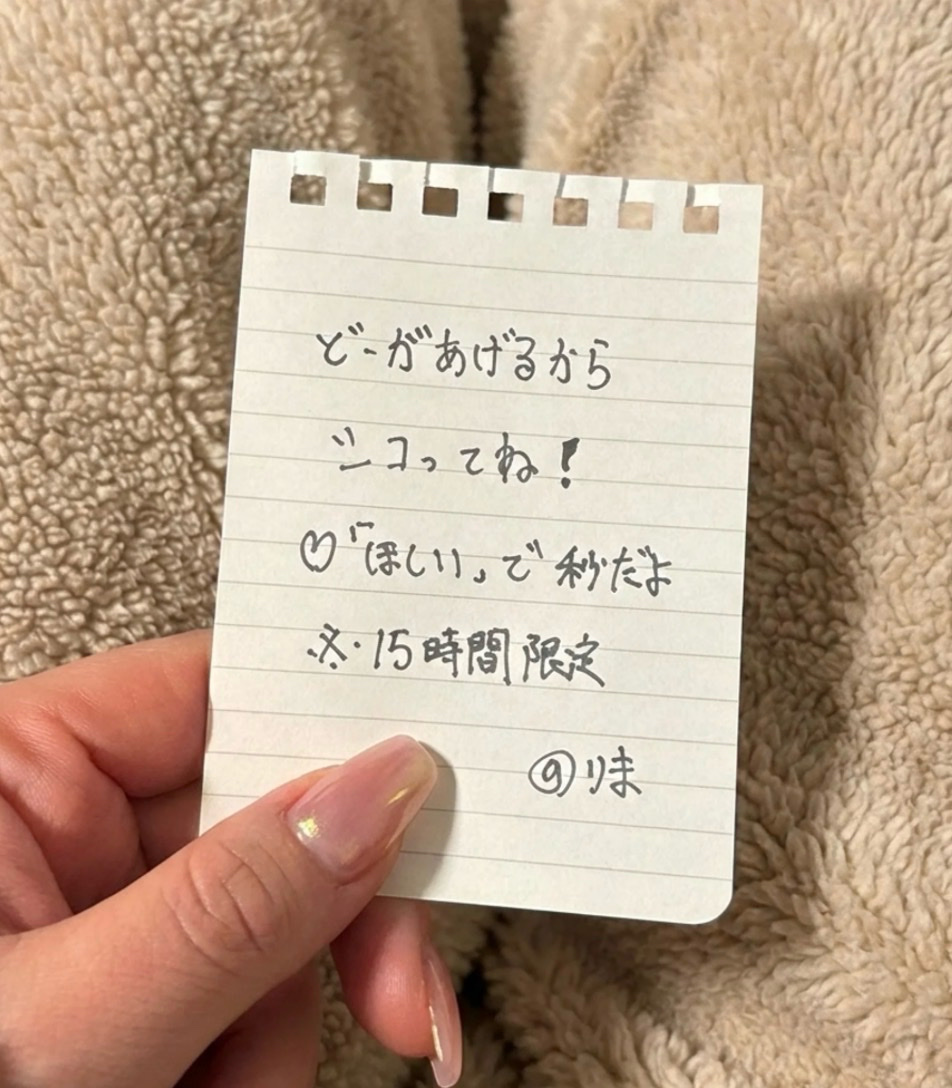 どーがあげるから
シコってね!
♡「ほしい」で秒だよ
※・15時間限定
@りま